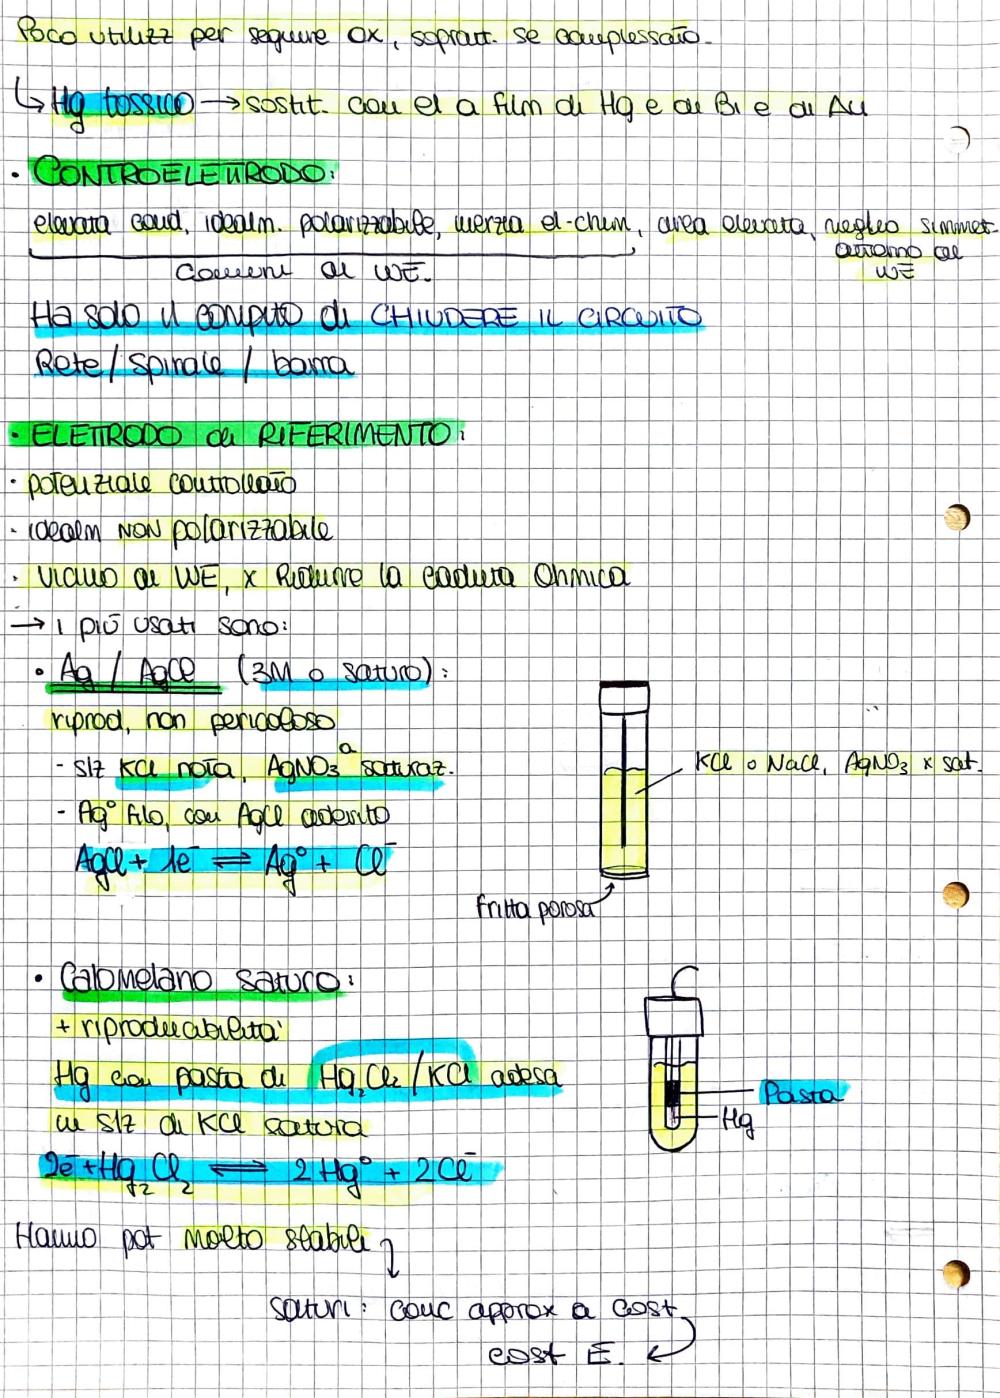 Poco utilizz per seguire ox, sopratt. se complessato.
↳ Hg tossico → sostit. con el a film di Hg e di Bi e di Au
• CONTROELETTRODO:
elevata cond, idealm. polarizzabile, inerzia el-chim, area elevata, meglio simmet.
attorno al
WE
Comuni al WE.
Ha solo il compito di CHIUDERE IL CIRCUITO
Rete / spirale / barra
• ELETTRODO di RIFERIMENTO:
• potenziale controllato
• idealm NON polarizzabile
• vicino al WE, x Ridurre la caduta Ohmica
→ i più usati sono:
• Ag / AgCl (3M o saturo):
riprod, non pericoloso
- slz KCl nota, AgNO3 a saturaz.
KCl o NaCl, AgNO3 x sat.
- Ag° filo, con AgCl aderito
AgCl + 1e⁻ ⇌ Ag° + Cl⁻
fritta porosa
• Calomelano saturo:
+ riproducibilità
Hg con pasta di Hg2Cl2 /KCl adesa
Pasta
in slz di KCl satura
Hg
2e⁻ + Hg2Cl2 ⇌ 2 Hg° + 2Cl⁻
Hanno pot molto stabili
saturi: conc approx a cost
cost E.